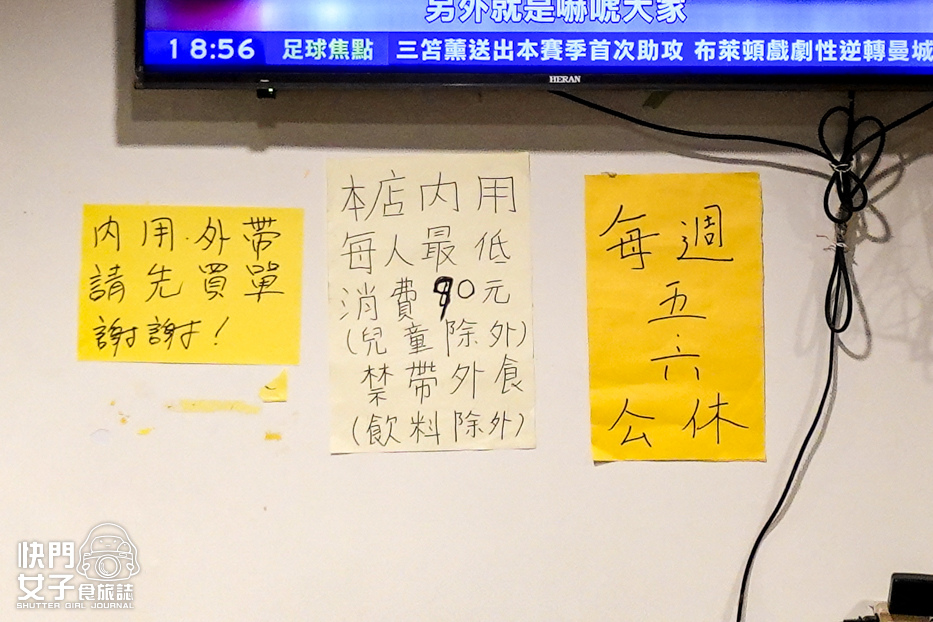 另外就是嚇唬大家
18:56 足球焦點 三笘薰送出本賽季首次助攻 布萊頓戲劇性逆轉曼城
HERAN
內用.外帶
請先買單
謝謝!
本店內用
每人最低
消費90元
(兒童除外)
禁帶外食
(飲料除外)
每週
五
六
公休
快門
女子食旅誌
SHUTTER GIRL JOURNAL